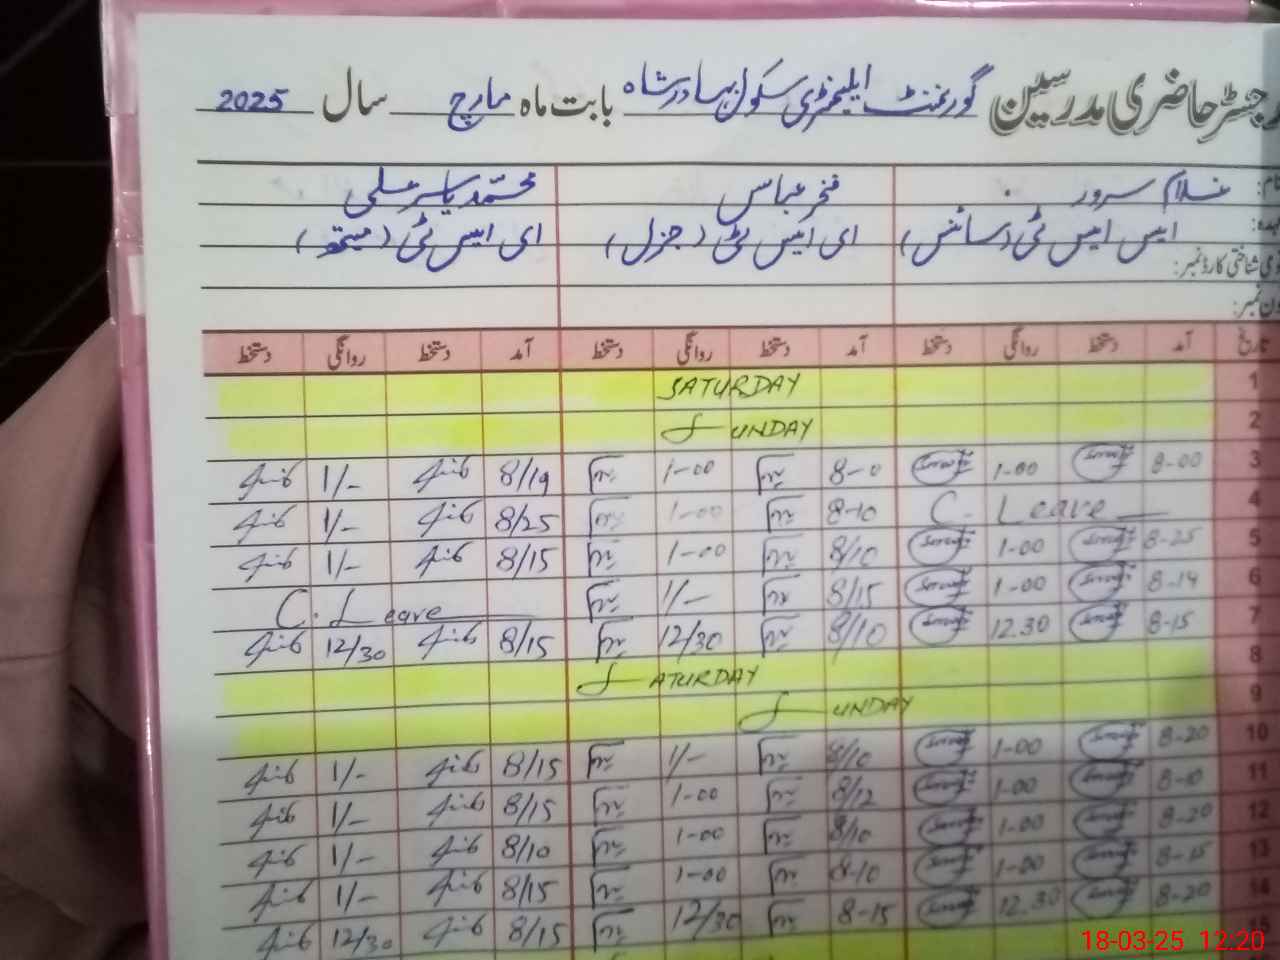 رجسٹر حاضری مدرسین گورنمنٹ ایلیمنٹری سکول بہادر شاہ بابت ماہ مارچ سال 2025
نام: غلام سرور فخر عباس محمد یاسر علی
عہدہ: ایس ایس ٹی (سائنس) ای ایس ٹی (جنرل) ای ایس ٹی (میتھ)
قومی شناختی کارڈ نمبر:
فون نمبر:
تاریخ آمد دستخط روانگی دستخط آمد دستخط روانگی دستخط آمد دستخط روانگی دستخط
1 SATURDAY
2 SUNDAY
3 8-00 1-00 8-0 1-00 8/19 1/-
4 C. Leave 8-10 1-00 8/25 1/-
5 8-25 1-00 8/10 1-00 8/15 1/-
6 8-14 1-00 8/15 1/- C. Leave
7 8-15 12.30 8/10 12/30 8/15 12/30
8 SATURDAY
9 SUNDAY
10 8-20 1-00 8/10 1/- 8/15 1/-
11 8-10 1-00 8/12 1-00 8/15 1/-
12 8-20 1-00 8/10 1-00 8/10 1/-
13 8-15 1-00 8-10 1-00 8/15 1/-
14 8-20 12.30 8-15 12/30 8/15 12/30
15
18-03-25 12:20